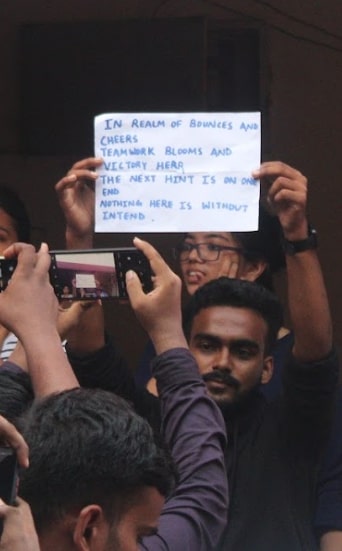 IN REALM OF BOUNCES AND
CHEERS
TEAMWORK BLOOMS AND
VICTORY HERA
THE NEXT HINT IS ON ONE
END
NOTHING HERE IS WITHOUT
INTEND.